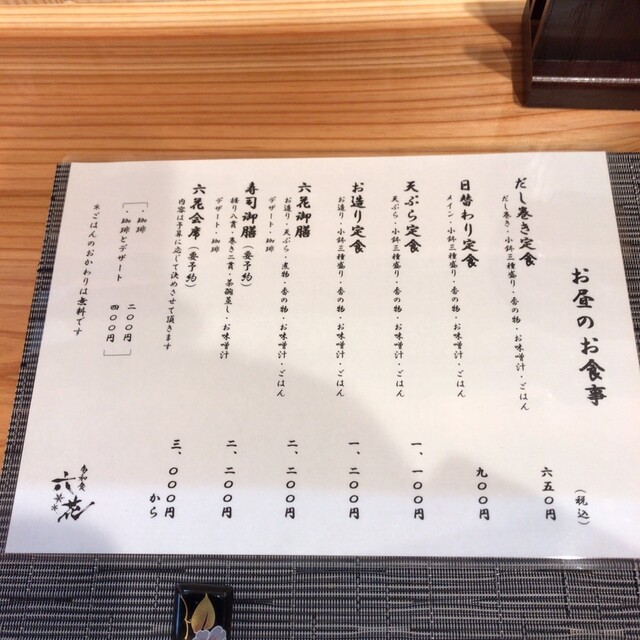 お昼のお食事
（税込）
だし巻き定食 六五〇円
だし巻き・小鉢三種盛り・香の物・お味噌汁・ごはん
日替わり定食 九〇〇円
メイン・小鉢三種盛り・香の物・お味噌汁・ごはん
天ぷら定食 一、一〇〇円
天ぷら・小鉢三種盛り・香の物・お味噌汁・ごはん
お造り定食 一、二〇〇円
お造り・小鉢三種盛り・香の物・お味噌汁・ごはん
六花御膳 二、二〇〇円
お造り・天ぷら・煮物・香の物・お味噌汁・ごはん
デザート・珈琲
寿司御膳（要予約） 二、二〇〇円
握り八貫・巻き二貫・茶碗蒸し・お味噌汁
デザート・珈琲
六花会席（要予約） 三、〇〇〇円から
内容は予算に応じて決めさせて頂きます
・珈琲 二〇〇円
・珈琲とデザート 四〇〇円
※ごはんのおかわりは無料です
六花